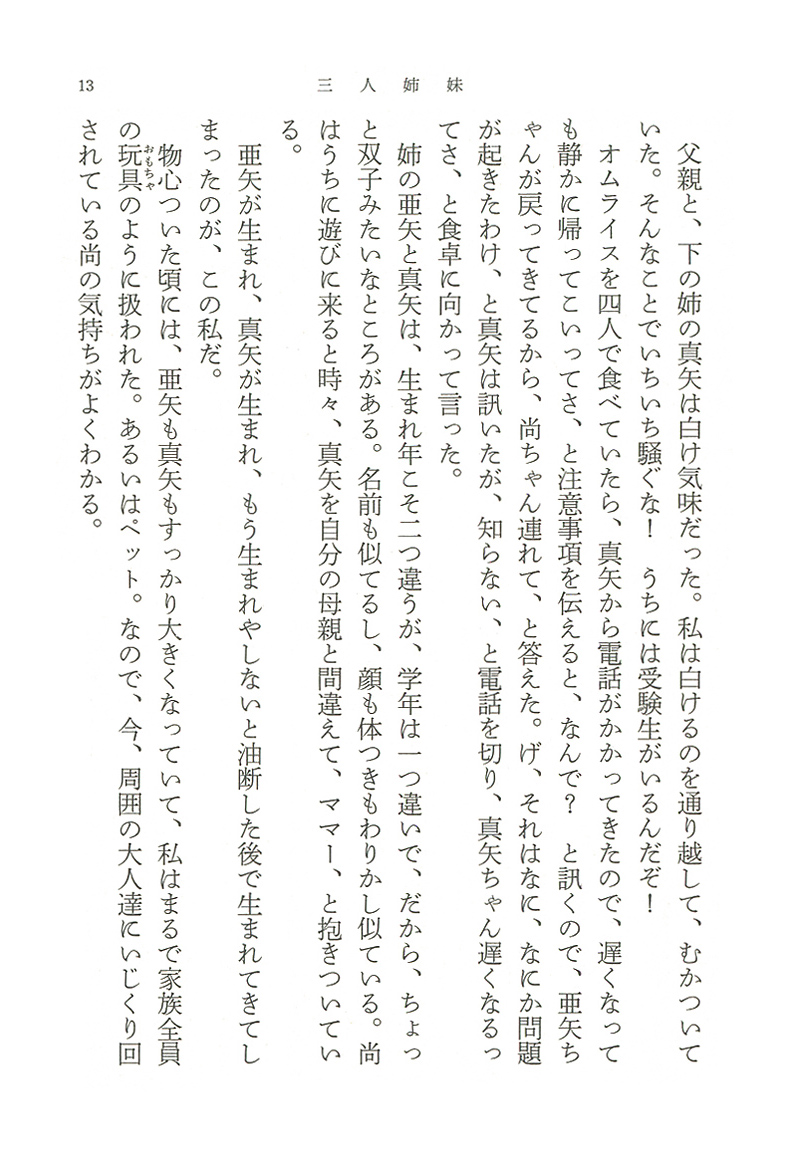 13
三人姉妹
父親と、下の姉の真矢は白け気味だった。私は白けるのを通り越して、むかついて
いた。そんなことでいちいち騒ぐな！　うちには受験生がいるんだぞ！
オムライスを四人で食べていたら、真矢から電話がかかってきたので、遅くなって
も静かに帰ってこいってさ、と注意事項を伝えると、なんで？　と訊くので、亜矢ち
ゃんが戻ってきてるから、尚ちゃん連れて、と答えた。げ、それはなに、なにか問題
が起きたわけ、と真矢は訊いたが、知らない、と電話を切り、真矢ちゃん遅くなるっ
てさ、と食卓に向かって言った。
姉の亜矢と真矢は、生まれ年こそ二つ違うが、学年は一つ違いで、だから、ちょっ
と双子みたいなところがある。名前も似てるし、顔も体つきもわりかし似ている。尚
はうちに遊びに来ると時々、真矢を自分の母親と間違えて、ママー、と抱きついてい
る。
亜矢が生まれ、真矢が生まれ、もう生まれやしないと油断した後で生まれてきてし
まったのが、この私だ。
物心ついた頃には、亜矢も真矢もすっかり大きくなっていて、私はまるで家族全員
の玩具おもちゃのように扱われた。あるいはペット。なので、今、周囲の大人達にいじくり回
されている尚の気持ちがよくわかる。